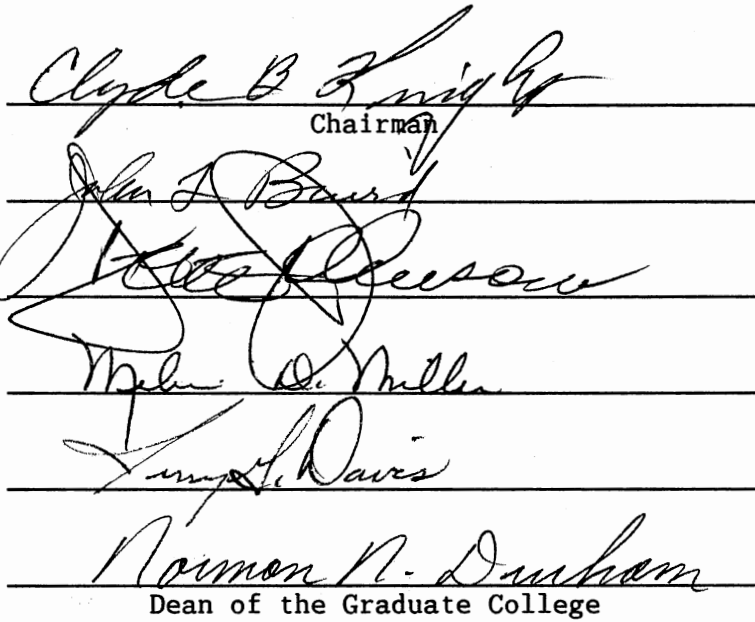 Clyde B Knight
Chairman
John L Baird
Melvin D. Miller
Davis
Norman N. Durham
Dean of the Graduate College